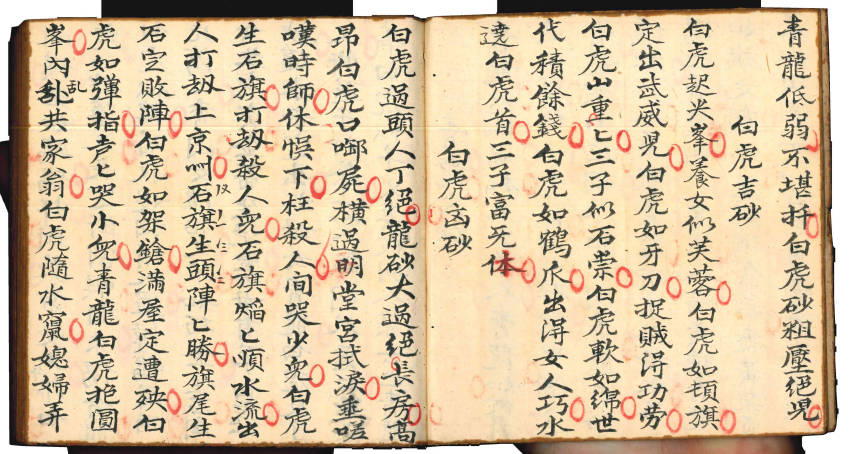 青龍低弱不堪扦白虎砂粗壓絕児
白虎吉砂
白虎起尖峯養女似芙蓉白虎如頓旗
定出武威児白虎如牙刀捉賊淂功劳
白虎山重匕三子似石崇白虎軟如綿世
代積餘錢白虎如鶴爪出淂女人巧水
遶白虎首三子富無休
白虎凶砂
白虎過頭人丁絕龍砂大過絕長房高
昂白虎口啣屍橫過明堂宮拭淚垂嗟
嘆時師休悮下枉殺人间哭少兒白虎
生石旗打刼殺人兒石旗熖匕順水流出
人打刼上京石旗生頭陣匕勝旗尾生
石定敗陣白虎如架鎗滿屋定遭殃白
虎如彈指声匕哭小兒青龍白虎抱圓
峯內亂共家翁白虎隨水竄媳婦弄
乱